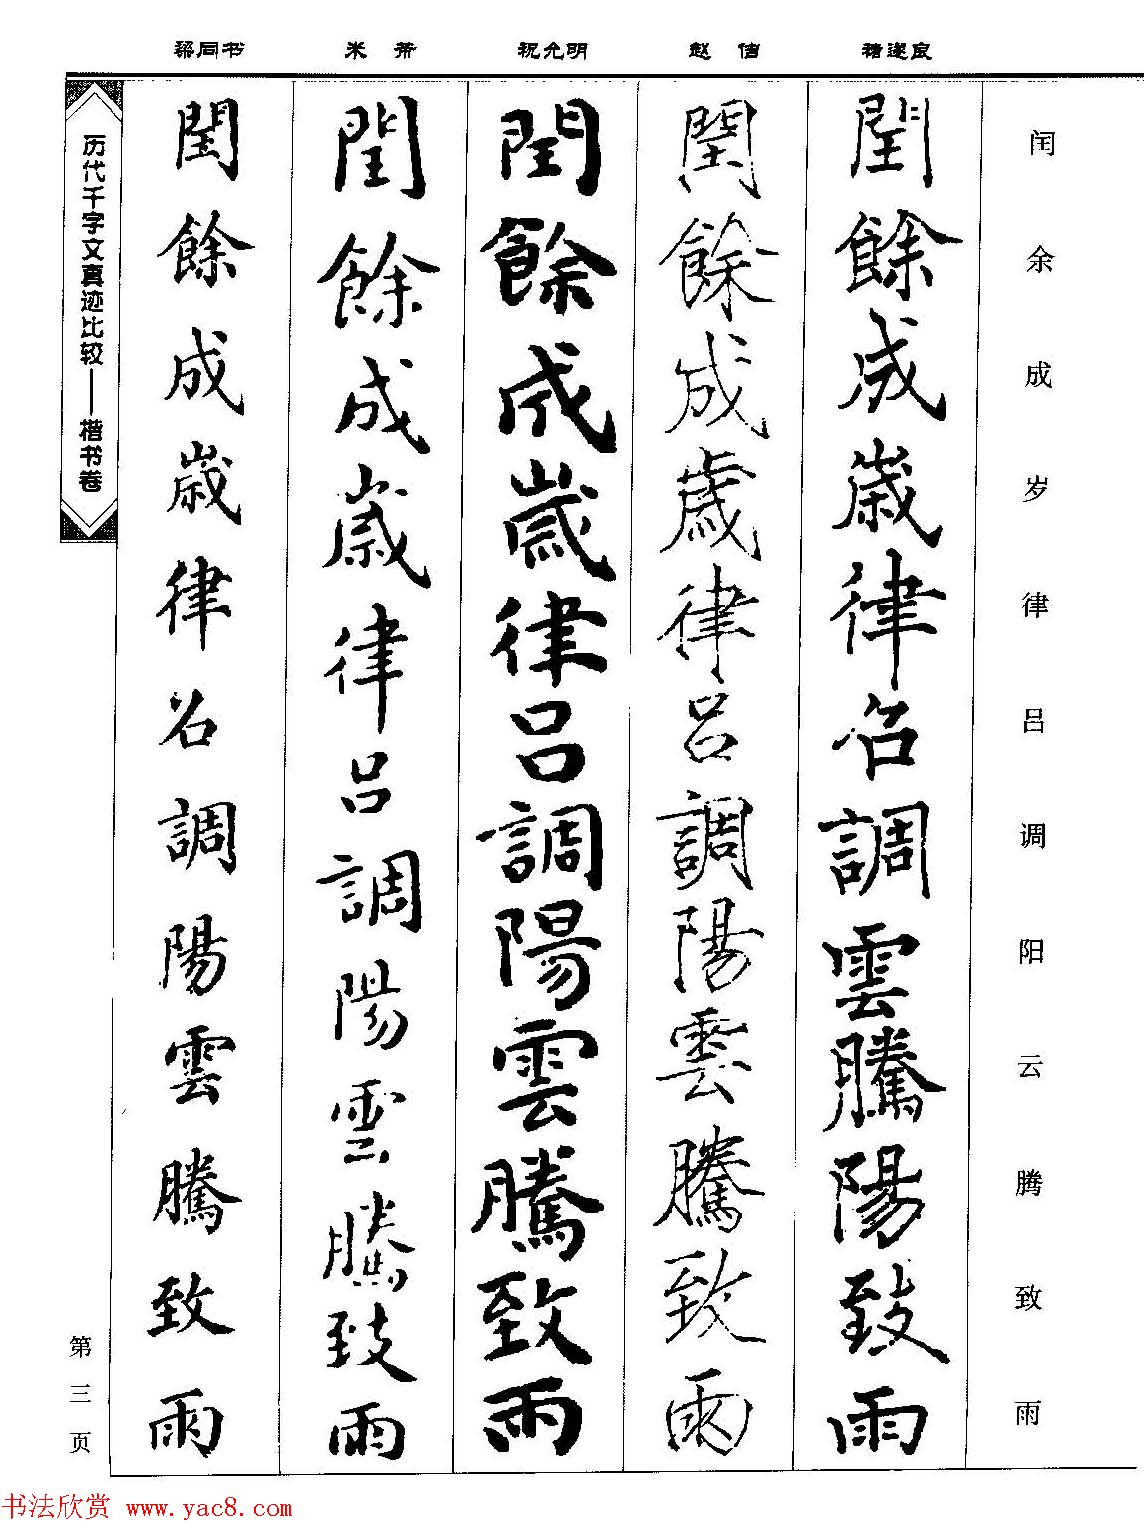 梁同书 米芾 祝允明 赵佶 褚遂良
闰余成岁律吕调阳云腾致雨
閏餘成歲律召調雲騰陽致雨
閏餘成歲律呂調陽雲騰致雨
閏餘成歲律吕調陽雲騰致雨
閏餘成歲律吕調陽雲騰致雨
閏餘成歲律召調陽雲騰致雨
历代千字文真迹比较——楷书卷
第三页
书法欣赏 www.yac8.com